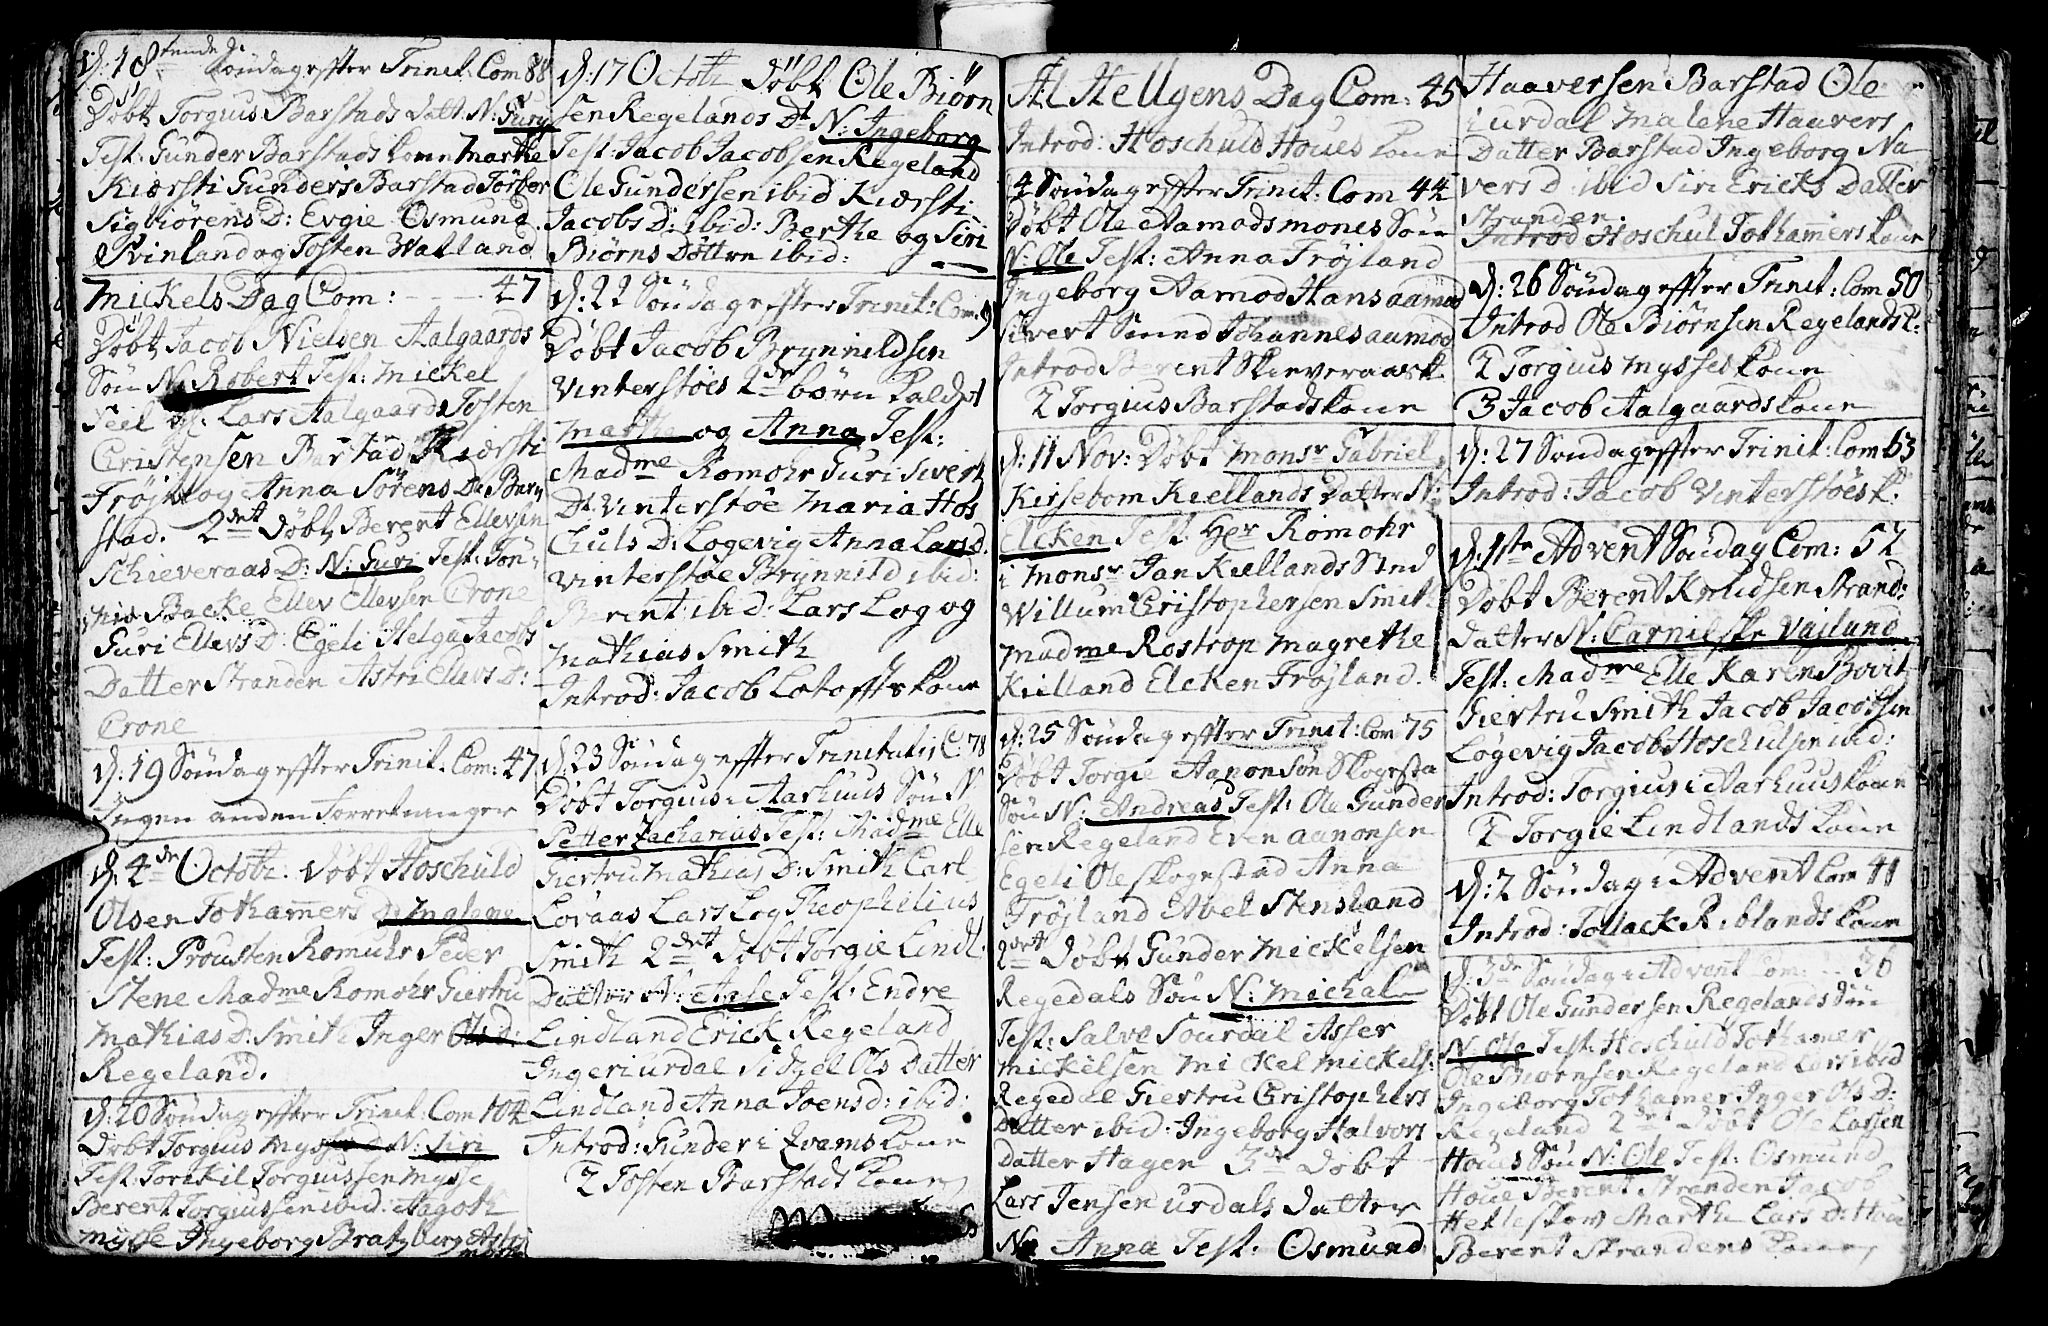 d: 18tende Söndag effter Trinit: Com 88
Döbt Torgius Barstads Datt: N: Gury
Test: Gunder Barstads kone Marthe
Kiersti Gunders Barstad Torbor
Sigbiörens D: Evgie Osmund
Qvinland og Tosten Watland
Mickels Dag Com: - - - 47
Döbt Jacob Nielsen Aalgaards
Sön N: Robert Test: Mickel
Seel Lars Aalgaard Tosten
Christensen Barstad Kiersti
Fröjl: og Anna Sörens D: Bar
stad. 2det Döbt Berent Ellevsen
Schieveraas D: N: Guri Test: Tön
nis Backe Ellev Ellevsen Crone
Guri Ellevs D: Egeli Helga Jacobs
Datter Stranden Astri Ellevs D:
Crone
d: 19 Söndag effter Trinit: Com: 47
Ingen anden Forretninger
d: 4de Octobr: Döbt Hoschuld
Olsen Tothamers D: Malene
Test: Prousten Romuhr Peder
Stene Madme Romohr Giertru
Mathias D: Smith Inger Ols D:
Regeland.
d: 20 Söndag effter Trinit: Com 104
Döbt Torgius Mysses D N: Siri
Test: Torkil Torgiussen Mysse
Berent Torgiussen ibid: Aagoth
Mysse Ingeborg Bratzberg Astri
Mysse
d: 17 Octobr Döbt Ole Biörn
sen Regelands Dt N: Ingeborg
Test: Jacob Jacobsen Regeland
Ole Gundersen ibid Kiersti
Jacobs D: ibid: Berthe og Siri
Biörns Döttre ibid:
d: 22 Söndag effter Trinit: Com: 91
Döbt Jacob Brynnildsen
Vinterstöes 2de börn kaldet
Marthe og Anna Test:
Madme Romohr Guri Sivert
Dt Vinterstöe Maria Hos
Chuls D: Logevig Anna Lars D.
Vinterstöe Brynnild ibid:
Berent ibid: Lars Log og
Mathias Smith
Introd: Jacob Lotoffts kone
d: 23 Söndag effter Trinitatis C: 78
Döbt Torgius i Aarhuus Sön N
Petter Zacharias Test: Madme Elle
Giertru Mathias D: Smith Carl
Loraas Lars Log Theophilius
Smith 2det Döbt Torgie Lindl:
Datter N: Aase Test: Endre
Lindland Erick Regeland
Inger i urdal Sidzel Ols Datter
Lindland Anna Joens D: ibid:
Introd: Gunder i Qvams kone
2 Tosten Barstads kone
Al Hellgens Dag Com: 45
Introd: Hoschuld Houes kone
24 Söndag effter Trinit: Com 44
Döbt Ole Aamodsmones Sön
N: Ole Test: Anna Fröjland
Ingeborg Aamod Hans aamod
Sivert Sinnd Johannes aamod
Introd Berent Skieveraas K:
2 Torgius Barstads kone
d: 11 Nov: Döbt Monsr Gabriel
Kirsebom Kiellands Datter N:
Elcken Test Her Romohr
i Monsr Jan Kiellands Sted
Willum Christophersen Smith
Madme Rostrop Magrethe
Kielland Elcken Fröjland.
d: 25 Söndag effter Trinit: Com 75
Döbt Torgie Aanonsön Skogesta
Sön N: Andreas Test: Ole Gunder
sen Regeland Even aanonsen
Egeli Ole Skogestad Anna
Fröjland Abel Stensland
2det Döbt Gunder Mickelsen
Regedals Sön N: Michal
Test: Salve Sourdal Asser
Mickelsen Mickel Mickels:
Regedal Giertru Christophers
Datter ibid: Ingeborg Halvors
Datter Hagen 3de Döbt
Lars Jensen urdals Datter
N: Anna Test: Osmund
Haaversen Barstad Ole
i urdal Malene Haavers
Datter Barstad Ingeborg Na
vers D: ibid Siri Ericks Datter
Stranden.
Introd Hoschul Tothamers kone
d: 26 Söndag effter Trinit: Com 50
Introd Ole Biörnsen Regelands K:
2 Torgius Mysses kone
3 Jacob Aalgaards kone
d: 27 Söndag effter Trinit: Com 63
Introd: Jacob Vinterstöes K:
d: 1ste Advent Söndag Com: 52
Döbt Berent Knudsen Strand:
Datter N: Carnilske Vajland
Test: Madme Elle Karen Bovitz
Giertru Smith Jacob Jacobsen
Logevig Jacob Hoschulsen ibid:
Introd: Torgius i Aarhuus kone
2 Torgie Lindlands kone
d: 2 Söndag i Advent Com 41
Introd: Tollack Riblands kone
d: 3de Söndag i Advent Com: - 36
Döbt Ole Gundersen Regelands Sön
N: Ole Test: Hoschuld Tothamer
Ole Biörnsen Regeland Lars ibid
Ingeborg Tothamer Inger Ols D:
Regeland 2det Döbt Ole Larsen
Houes Sön N: Ole Test: Osmund
Houe Berent Stranden Jacob
Helleskow Marthe Lars D: Houe
Berent Strandens kone